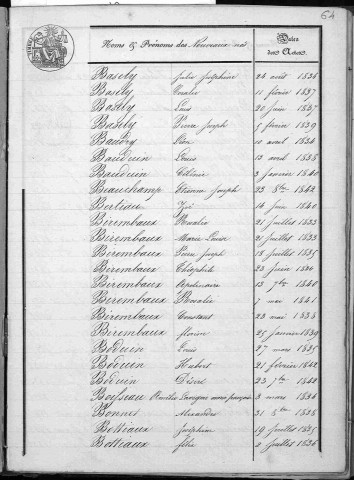 64
Noms & Prénoms des Nouveaux nés Dates des Actes
Basely Julie Joséphine 24 août 1836
Basely Rosalie 11 février 1837
Basely Louis 20 juin 1837
Basely Pierre Joseph 5 février 1839
Baudry Léon 10 avril 1834
Bauduin Louis 13 avril 1838
Bauduin 3 janvier 1840
Beauchamp Etienne Joseph 23 8bre 1842
Bertiau 14 juin 1840
Bérembaux Rosalie 21 juillet 1833
Bérembaux Marie Louise 21 juillet 1833
Bérembaux Pierre Joseph 18 juillet 1835
Bérembaux Théophile 23 juin 1840
Bérembaux Apolinaire 13 7bre
Bérembaux Rosalie 7 mai 1841
Bérembaux Constant 23 mai 1838
Berembaux florine 25 janvier 1839
Boduin Louis 27 mars 1835
Boduin Hubert 21 février 1842
Boduin Désiré 23 7bre 1842
Boisseau 3 mars 1836
Bonnet Alexandre 31 8bre 1838
Bottiaux Joséphine 19 juillet 1835
Bottiaux félix 2 juillet 1836